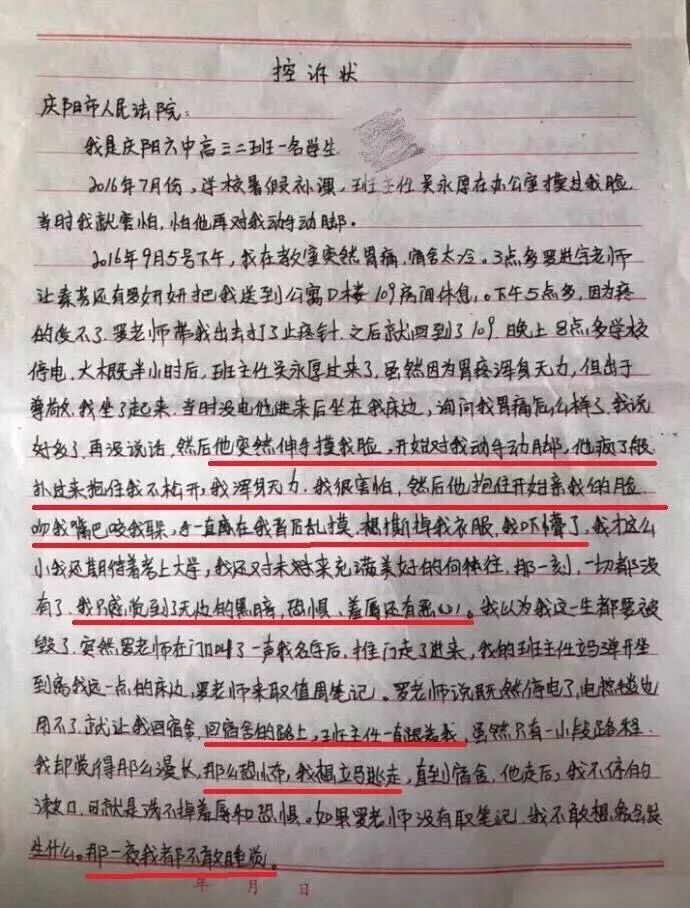 控诉状
庆阳市人民法院:
我是庆阳六中高三二班一名学生
2016年7月份,学校暑假补课,班主任吴永厚在办公室摸过我脸
当时我就害怕,怕他再对我动手动脚。
2016年9月5号下午,我在教室突然胃痛,宿舍太冷。3点多罗进宇老师
让素芳还有罗妍妍把我送到公寓D楼109房间休息。下午5点多,因为疼
的受不了.罗老师带我出去打了止疼针.之后就回到了109.晚上8点多学校
停电,大概半小时后,班主任吴永厚过来了,虽然因为胃疼浑身无力,但出于
尊敬,我坐了起来.当时没电他进来后坐在我床边,询问我胃痛怎么样了.我说
好多了.再没说话,然后他突然伸手摸我脸,开始对我动手动脚,他疯了般
扑过来抱住我不松开,我浑身无力.我很害怕,然后他抱住开始亲我的脸
吻我嘴巴咬我耳朵,手一直在我背后乱摸.想撕掉我衣服,我吓懵了,我才这么
小我还期待着考上大学,我还对未来充满美好的向往,那一刻,一切都没
有了.我只感觉到了无边的黑暗,恐惧、羞辱还有恶心!我以为我这一生都要被
毁了.突然罗老师在门口叫了一声我名字后,推门走了进来,我的班主任立马弹开坐
到离我远一点的床边,罗老师来取值周笔记。罗老师说既然停电了,电热毯也
用不了.就让我回宿舍,回宿舍的路上,班主任一直跟着我,虽然只有一小段路程.
我却觉得那么漫长,那么恐怖,我想立马逃走,直到宿舍,他走后,我不停的
漱口,可就是洗不掉羞辱和恐惧。如果罗老师没有取笔记,我不敢想象会发
生什么。那一夜我都不敢睡觉。
年 月 日